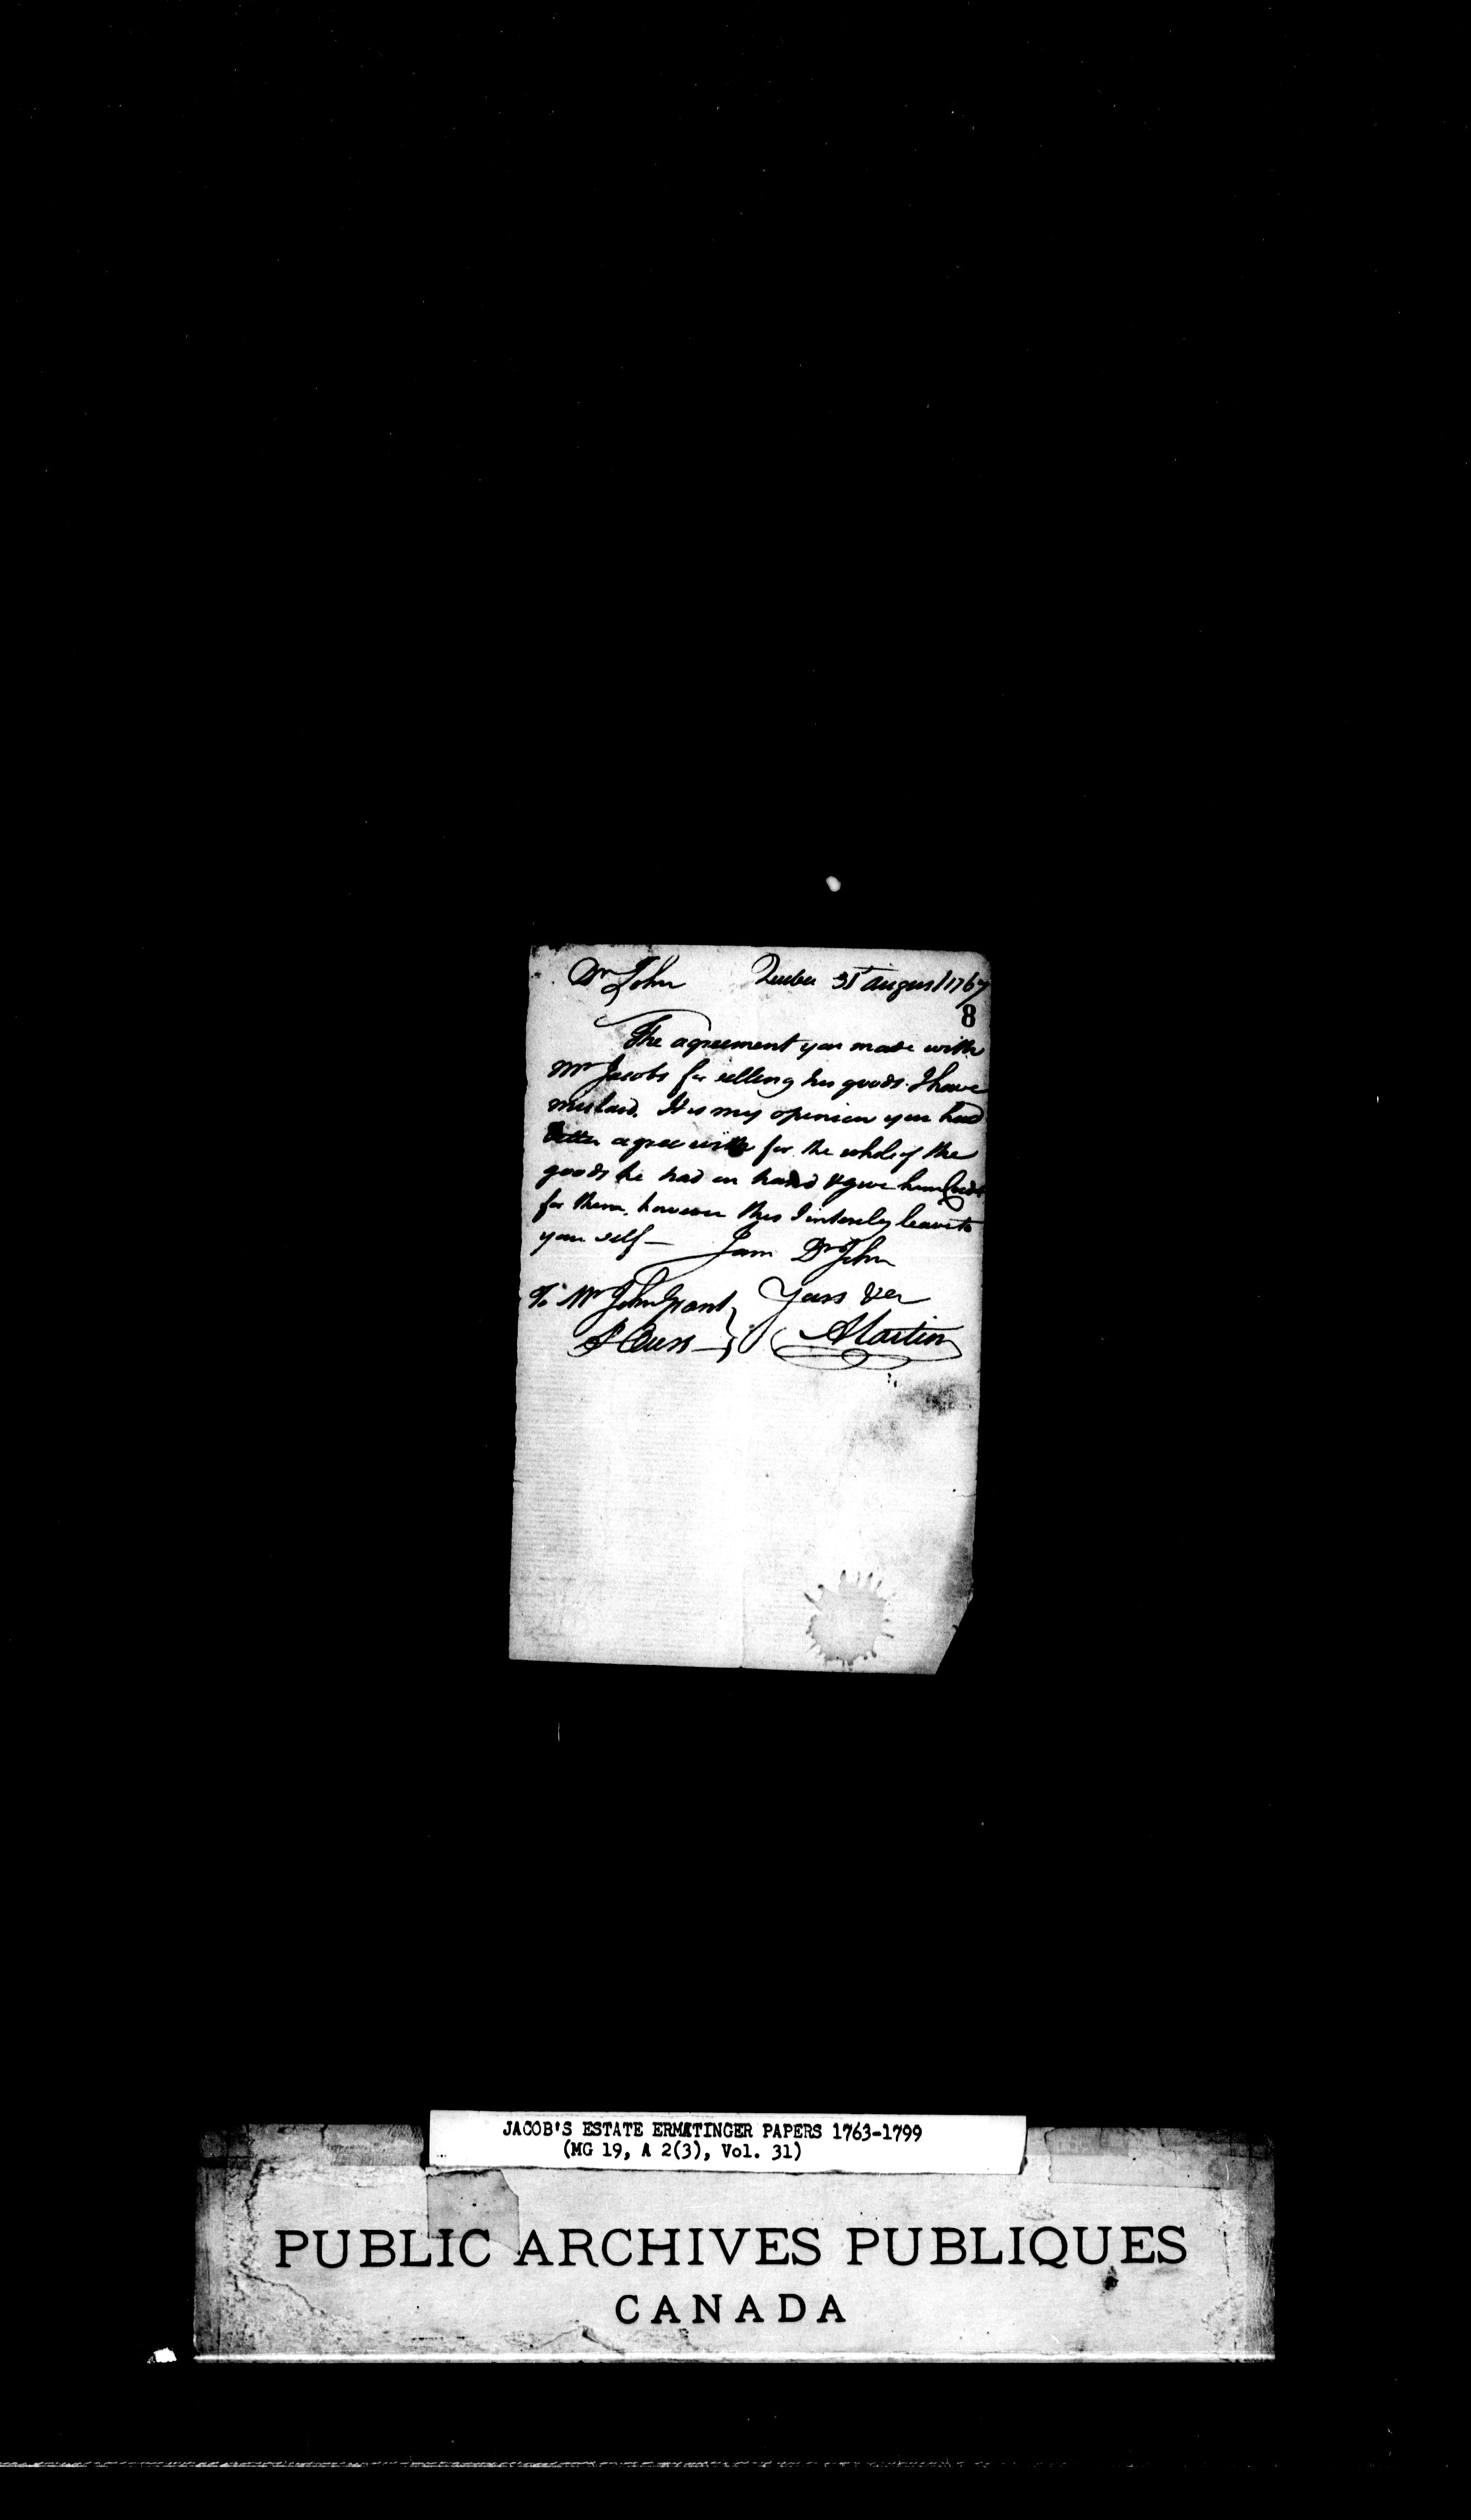 Dr John Quebec 31st August 1767
8
The agreement you made with
Mr Jacobs for selling his goods. I have
mislaid. It is my opinion you had
Better agree with for the whole of the
goods he had on hand & give him
for them, however this I intirely leave to
your self — I am Dr John
To Mr John Grant Yours &ca
St Ours AMartin
JACOB'S ESTATE ERMATINGER PAPERS 1763-1799
(MG 19, A 2(3), Vol. 31)
PUBLIC ARCHIVES PUBLIQUES
CANADA